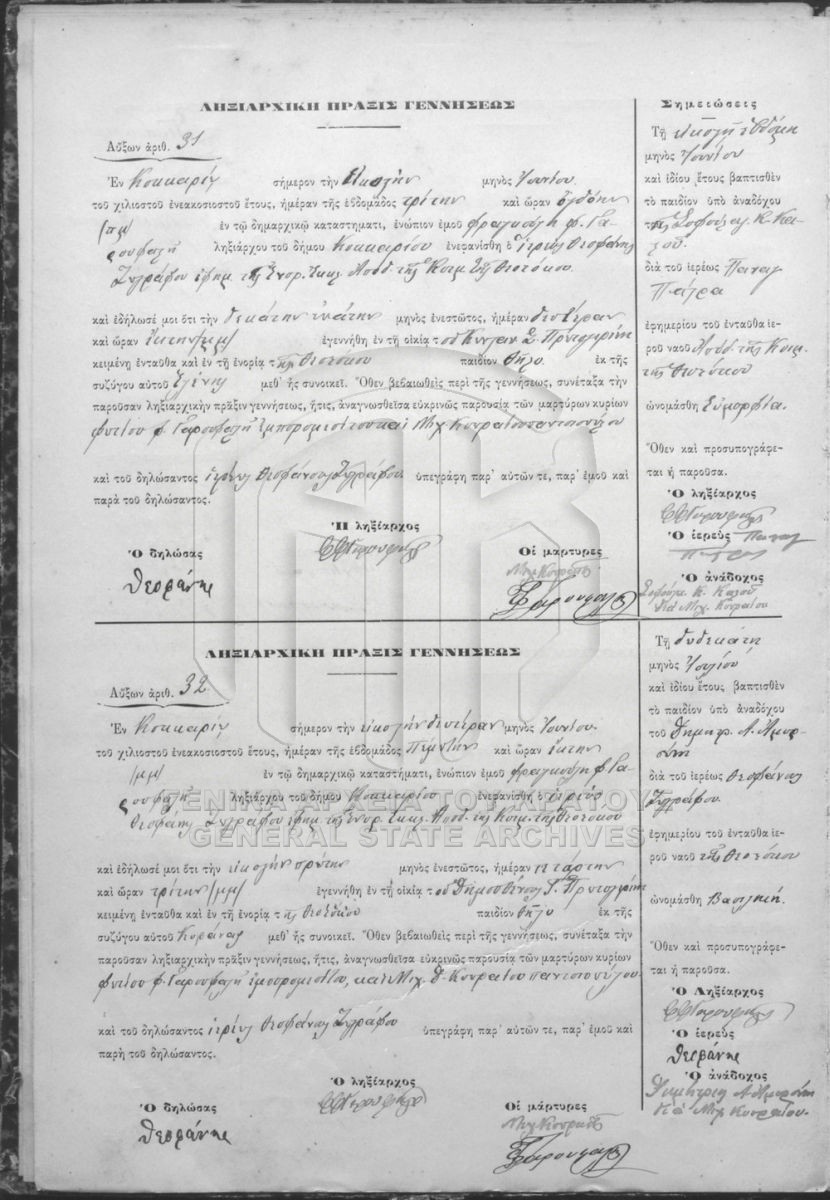 ΛΗΞΙΑΡΧΙΚΗ ΠΡΑΞΙΣ ΓΕΝΝΗΣΕΩΣ
Αὔξων ἀριθ. 31
Ἐν Κοκκαρίῳ σήμερον τὴν εἰκοστὴν μηνὸς Ἰουνίου.
τοῦ χιλιοστοῦ ἐνεακοσιοστοῦ ἔτους, ἡμέραν τῆς ἑβδομάδος τρίτην καὶ ὥραν ὀγδόην
/πμ/ ἐν τῷ δημαρχικῷ καταστήματι, ἐνώπιον ἐμοῦ Φραγκούλη Φ. Γα-
ρουφαλῆ ληξιάρχου τοῦ δήμου Κοκκαρίου ἐνεφανίσθη ὁ ἱερεὺς Θεοφάνης
Ζωγράφου ἐφημ. τῆς Ἐνορ. Ἐκκλ. τῆς Κοιμ. τῆς Θεοτόκου
καὶ ἐδήλωσέ μοι ὅτι τὴν δεκάτην ἐνάτην μηνὸς ἐνεστῶτος, ἡμέραν δευτέραν
καὶ ὥραν ἕκτην /μμ/ ἐγεννήθη ἐν τῇ οἰκίᾳ τοῦ
κειμένῃ ἐνταῦθα καὶ ἐν τῇ ἐνορίᾳ τῆς Θεοτόκου παιδίον θῆλυ ἐκ τῆς
συζύγου αὐτοῦ Ἑλένης μεθ᾽ ἧς συνοικεῖ. Ὅθεν βεβαιωθεὶς περὶ τῆς γεννήσεως, συνέταξα τὴν
παροῦσαν ληξιαρχικὴν πρᾶξιν γεννήσεως, ἥτις, ἀναγνωσθεῖσα εὐκρινῶς παρουσίᾳ τῶν μαρτύρων κυρίων
Φωτίου Φ. Γαρουφαλῆ ἐμπορομεσίτου καὶ Μιχ. Κουραίου παντοπώλου
καὶ τοῦ δηλώσαντος ἱερέως Θεοφάνους Ζωγράφου ὑπεγράφη παρ᾽ αὐτῶν τε, παρ᾽ ἐμοῦ καὶ
παρὰ τοῦ δηλώσαντος.
Ἡ ληξίαρχος
Ὁ δηλώσας
Οἱ μάρτυρες
Θεοφάνης
Σημειώσεις
Τῇ εἰκοστῇ ἑβδόμῃ
μηνὸς Ἰουνίου
καὶ ἰδίου ἔτους βαπτισθὲν
τὸ παιδίον ὑπὸ ἀναδόχου
διὰ τοῦ ἱερέως Παναγ.
Πάτρα
ἐφημερίου τοῦ ἐνταῦθα ἱε-
ροῦ ναοῦ τῆς Κοιμ.
τῆς Θεοτόκου
ὠνομάσθη Εὐμορφία.
Ὅθεν καὶ προσυπογράφε-
ται ἡ παροῦσα.
Ὁ ληξίαρχος
Ὁ ἱερεὺς Παναγ.
Πάτρας
Ὁ ἀνάδοχος
διὰ Μιχ. Κουραίου
ΛΗΞΙΑΡΧΙΚΗ ΠΡΑΞΙΣ ΓΕΝΝΗΣΕΩΣ
Αὔξων ἀριθ. 32
Ἐν Κοκκαρίῳ σήμερον τὴν εἰκοστὴν δευτέραν μηνὸς Ἰουνίου.
τοῦ χιλιοστοῦ ἐνεακοσιοστοῦ ἔτους, ἡμέραν τῆς ἑβδομάδος Πέμπτην καὶ ὥραν ἕκτην
/μμ/ ἐν τῷ δημαρχικῷ καταστήματι, ἐνώπιον ἐμοῦ Φραγκούλη Φ Γα-
ρουφαλῆ ληξιάρχου τοῦ δήμου Κοκκαρίου ἐνεφανίσθη ὁ ἱερεὺς
Θεοφάνης Ζωγράφου ἐφημ. τῆς Ἐνορ. Ἐκκλ. τῆς Κοιμ. τῆς Θεοτόκου
καὶ ἐδήλωσέ μοι ὅτι τὴν εἰκοστὴν πρώτην μηνὸς ἐνεστῶτος, ἡμέραν τετάρτην
καὶ ὥραν τρίτην /μμ/ ἐγεννήθη ἐν τῇ οἰκίᾳ τοῦ Δημοσθένους
κειμένῃ ἐνταῦθα καὶ ἐν τῇ ἐνορίᾳ τῆς Θεοτόκου παιδίον θῆλυ ἐκ τῆς
συζύγου αὐτοῦ μεθ᾽ ἧς συνοικεῖ. Ὅθεν βεβαιωθεὶς περὶ τῆς γεννήσεως, συνέταξα τὴν
παροῦσαν ληξιαρχικὴν πρᾶξιν γεννήσεως, ἥτις, ἀναγνωσθεῖσα εὐκρινῶς παρουσίᾳ τῶν μαρτύρων κυρίων
Φωτίου Φ. Γαρουφαλῆ ἐμπορομεσίτου, καὶ Μιχ. Δ. Κουραίου παντοπώλου
καὶ τοῦ δηλώσαντος ἱερέως Θεοφάνους Ζωγράφου ὑπεγράφη παρ᾽ αὐτῶν τε, παρ᾽ ἐμοῦ καὶ
παρὴ τοῦ δηλώσαντος.
Ὁ ληξίαρχος
Ὁ δηλώσας
Οἱ μάρτυρες
Θεοφάνης
Τῇ δωδεκάτῃ
μηνὸς Ἰουλίου
καὶ ἰδίου ἔτους βαπτισθὲν
τὸ παιδίον ὑπὸ ἀναδόχου
τοῦ Δημητρ. Α.
διὰ τοῦ ἱερέως Θεοφάνους
Ζωγράφου.
ἐφημερίου τοῦ ἐνταῦθα ἱε-
ροῦ ναοῦ τῆς Θεοτόκου
ὠνομάσθη Βασιλική.
Ὅθεν καὶ προσυπογράφε-
ται ἡ παροῦσα.
Ὁ Ληξίαρχος
Ὁ ἱερεὺς
Θεοφάνης
Ὁ ἀνάδοχος
διὰ Μιχ. Κουραίου.
ΓΕΝΙΚΑ ΑΡΧΕΙΑ ΤΟΥ ΚΡΑΤΟΥΣ
GENERAL STATE ARCHIVES